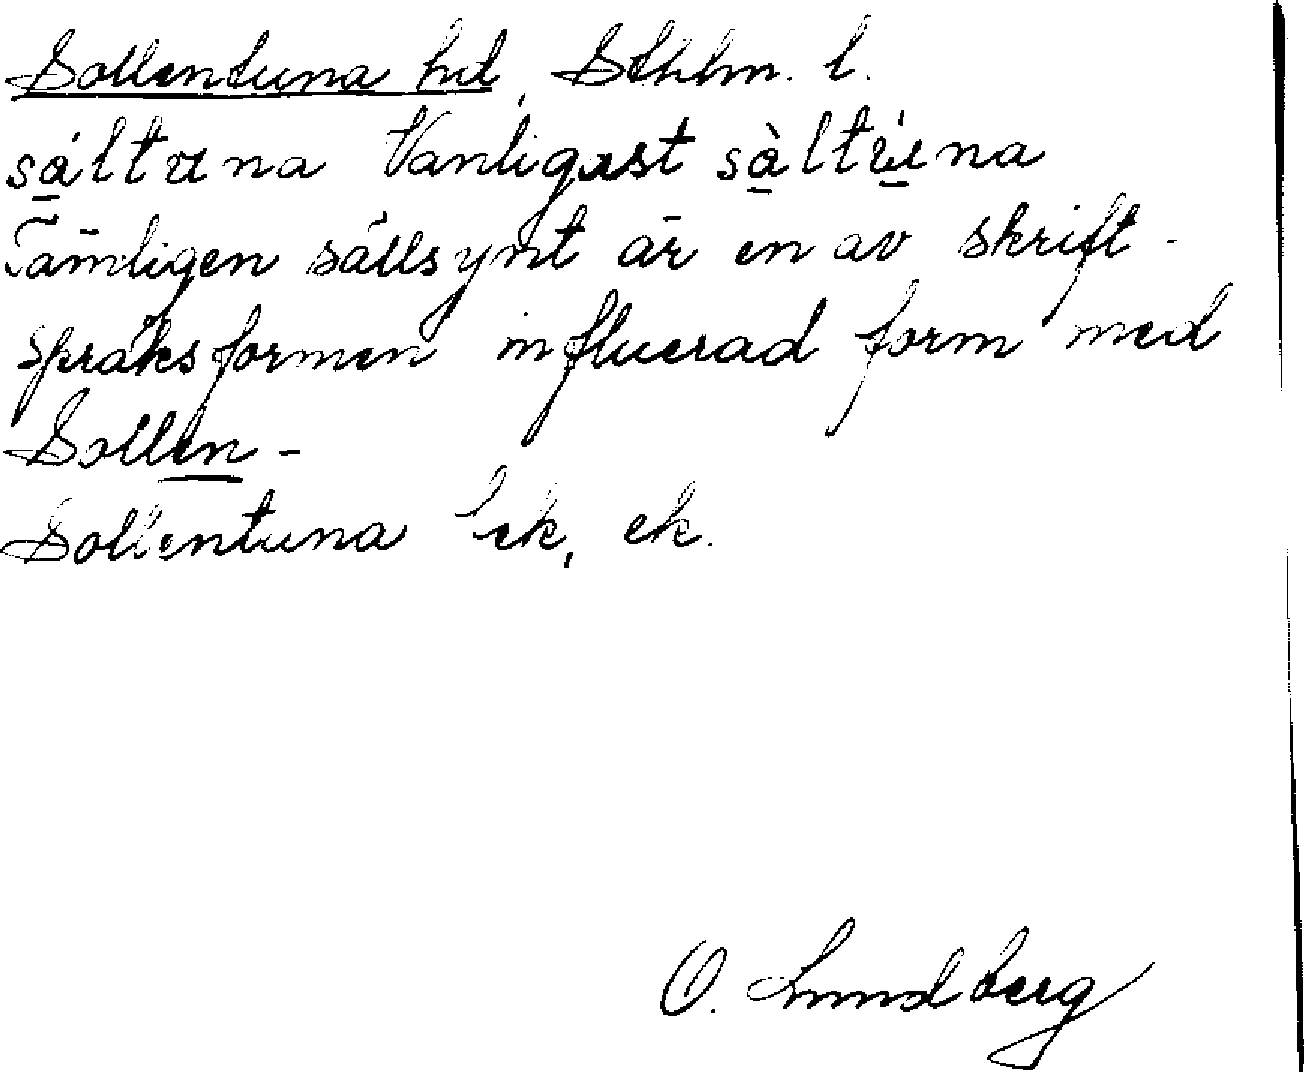 Sollentuna hd, Sthlm. l.
sáltuna Vanligast sàltúna
Tämligen sällsynt är en av skrift-
språksformen influerad form med
Sollen-
Sollentuna ek.
O. Lundberg